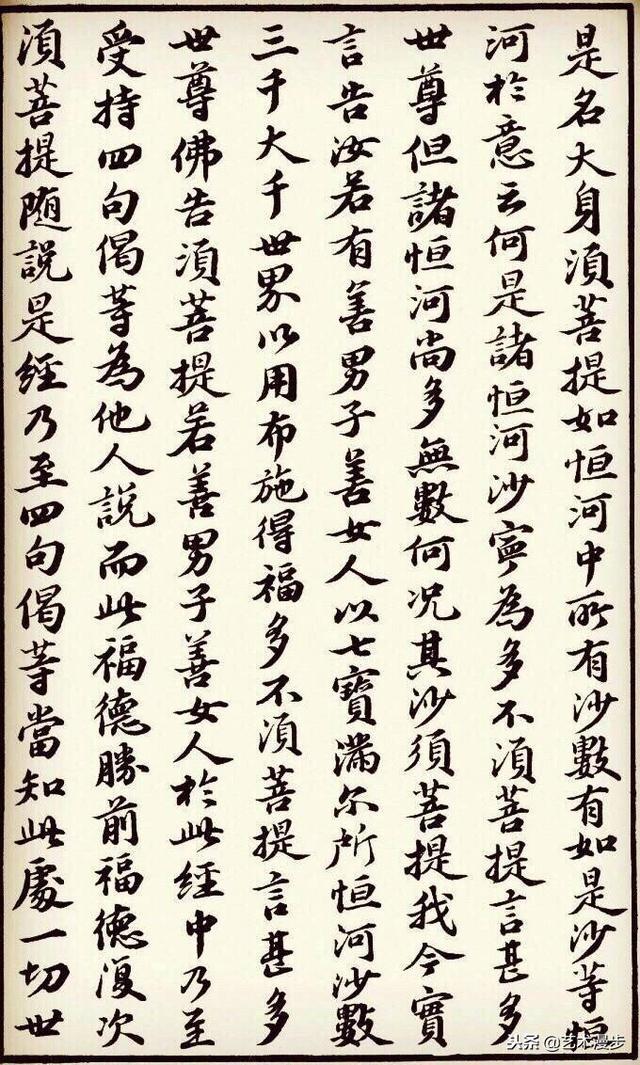 是名大身須菩提如恒河中所有沙數有如是沙等恒
河於意云何是諸恒河沙寧為多不須菩提言甚多
世尊但諸恒河尚多無數何况其沙須菩提我今實
言告汝若有善男子善女人以七寶滿尔所恒河沙數
三千大千世界以用布施得福多不須菩提言甚多
世尊佛告須菩提若善男子善女人於此經中乃至
受持四句偈等為他人說而此福德勝前福德復次
須菩提随說是經乃至四句偈等當知此處一切世
头条@艺术漫步